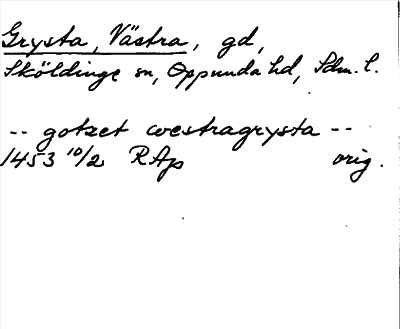 Grysta, Västra, gd,
Sköldinge sn, Oppunda hd, Sdm. l.
-- gotzet westragrysta --
1453 10/2 RAp orig.